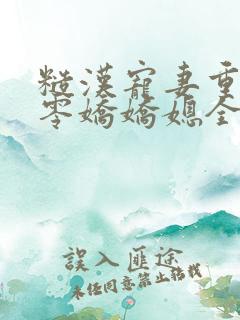 糙漢寵妻重
零嬌嬌媳全
誤入匪途
未任同意禁止轉載